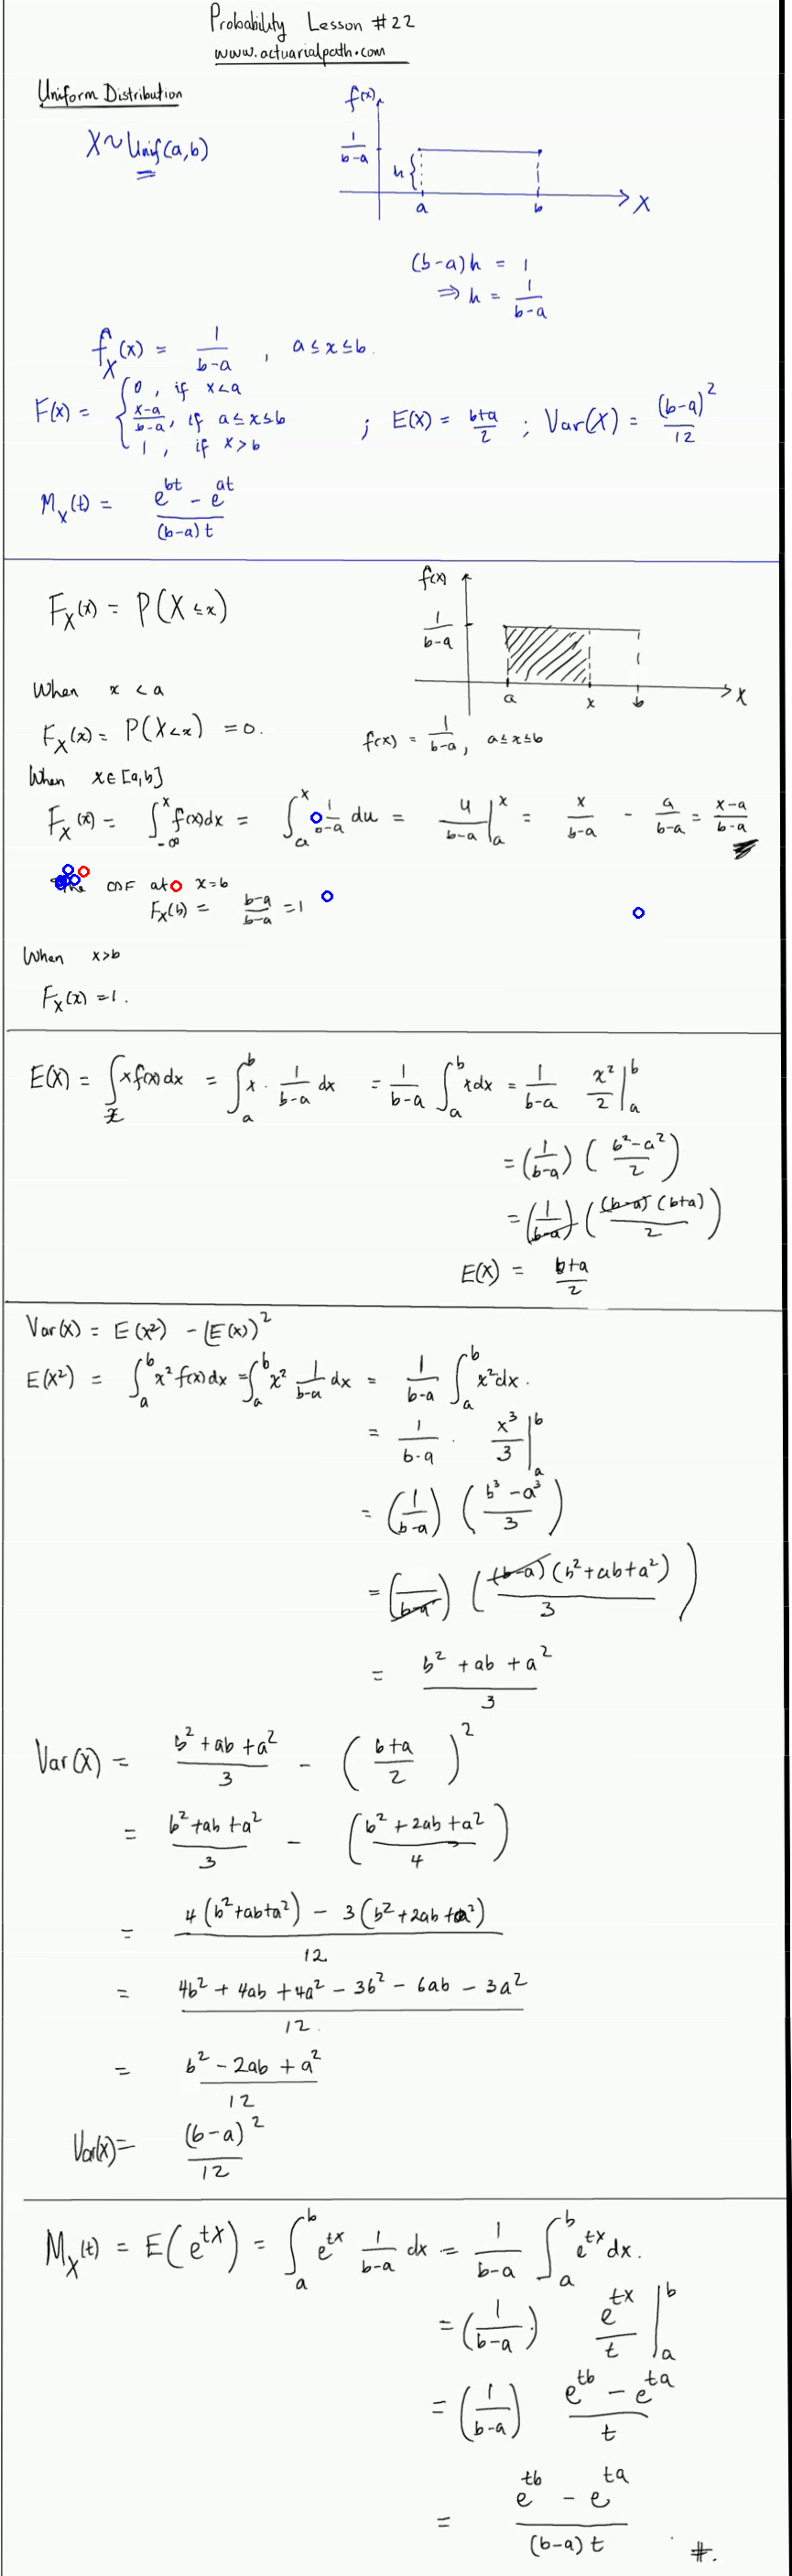 Probability Lesson #22
www.actuarialpath.com
Uniform Distribution
X ~ Unif(a,b)
f(x)
1/(b-a)
h{
a b X
(b-a)h = 1
⇒ h = 1/(b-a)
f_X(x) = 1/(b-a) , a ≤ x ≤ b.
F(x) = { 0 , if x<a
(x-a)/(b-a), if a ≤ x ≤ b
1 , if x > b
; E(X) = (b+a)/2 ; Var(X) = (b-a)²/12
M_X(t) = (e^(bt) - e^(at))/((b-a)t)
F_X(x) = P(X ≤ x)
f(x)
1/(b-a)
a x b X
f(x) = 1/(b-a), a ≤ x ≤ b
When x < a
F_X(x) = P(X<x) = 0.
When x ∈ [a,b]
F_X(x) = ∫_{-∞}^{x} f(x)dx = ∫_a^x 1/(b-a) du = u/(b-a) |_a^x = x/(b-a) - a/(b-a) = (x-a)/(b-a)
The CDF at x=b
F_X(b) = (b-a)/(b-a) = 1
When x>b
F_X(x) = 1.
E(X) = ∫_x x f(x) dx = ∫_a^b x · 1/(b-a) dx = 1/(b-a) ∫_a^b x dx = 1/(b-a) x²/2 |_a^b
= (1/(b-a)) ((b²-a²)/2)
= (1/(b-a)) ((b-a)(b+a)/2)
E(X) = (b+a)/2
Var(X) = E(X²) - (E(X))²
E(X²) = ∫_a^b x² f(x) dx = ∫_a^b x² 1/(b-a) dx = 1/(b-a) ∫_a^b x² dx.
= 1/(b-a) · x³/3 |_a^b
= (1/(b-a)) ((b³-a³)/3)
= (/(b-a)) ((b-a)(b²+ab+a²)/3)
= (b² + ab + a²)/3
Var(X) = (b² + ab + a²)/3 - ((b+a)/2)²
= (b² + ab + a²)/3 - ((b² + 2ab + a²)/4)
= (4(b²+ab+a²) - 3(b²+2ab+a²))/12
= (4b² + 4ab + 4a² - 3b² - 6ab - 3a²)/12.
= (b² - 2ab + a²)/12
Var(X) = (b-a)²/12
M_X(t) = E(e^(tX)) = ∫_a^b e^(tx) 1/(b-a) dx = 1/(b-a) ∫_a^b e^(tx) dx.
= (1/(b-a)) e^(tx)/t |_a^b
= (1/(b-a)) (e^(tb) - e^(ta))/t
= (e^(tb) - e^(ta))/((b-a)t) #.